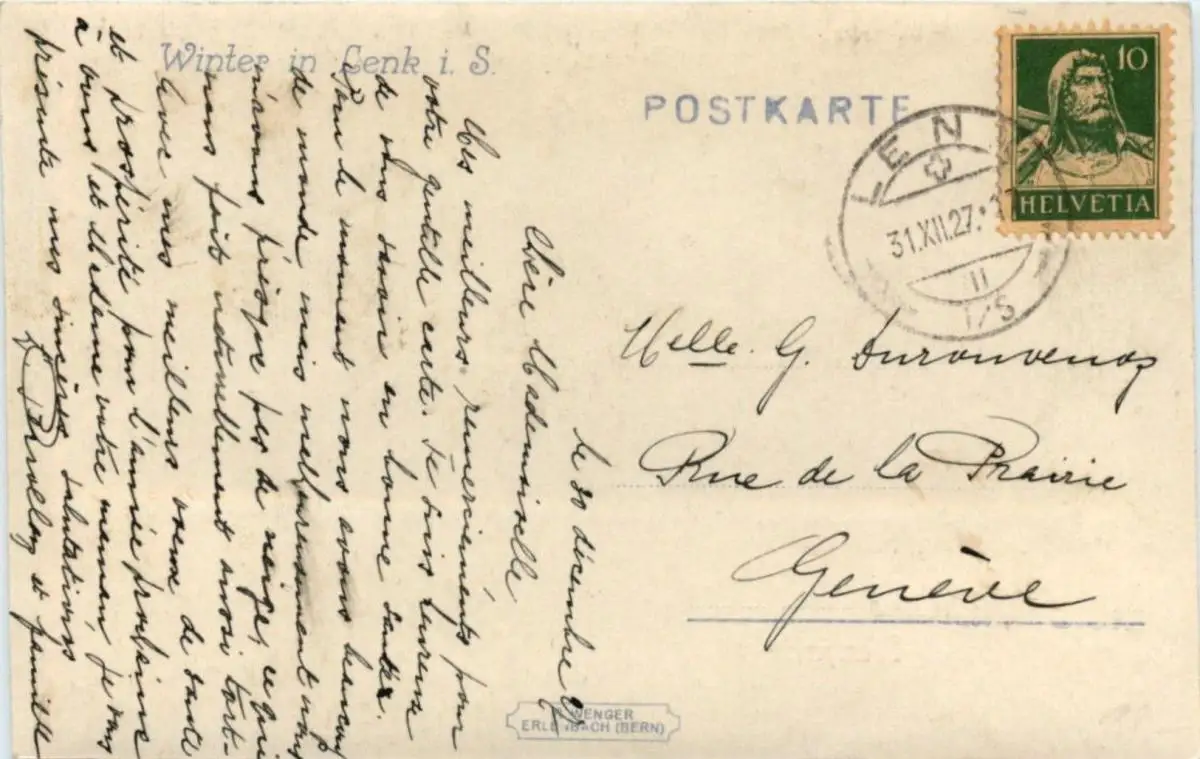 Winter in Lenk i. S.
POSTKARTE
10
HELVETIA
LENK
31.XII.27
II
i/S
Melle. G. Durouvenoz
Rue de la Prairie
Genève
WENGER
ERLENBACH (BERN)
le 30 décembre 27
Chère Mademoiselle
Mes meilleurs remerciements pour
votre gentille carte. Je suis heureuse
de vous savoir en bonne santé.
Pour le moment nous avons beaucoup
de monde mais malheureusement nous
n'avons presque pas de neige, ce qui
nous fait naturellement aussi tort.
Avec mes meilleurs voeux de santé
et prospérité pour l'année prochaine
à vous et Madame votre maman, je vous
présente mes sincères salutations
et famille